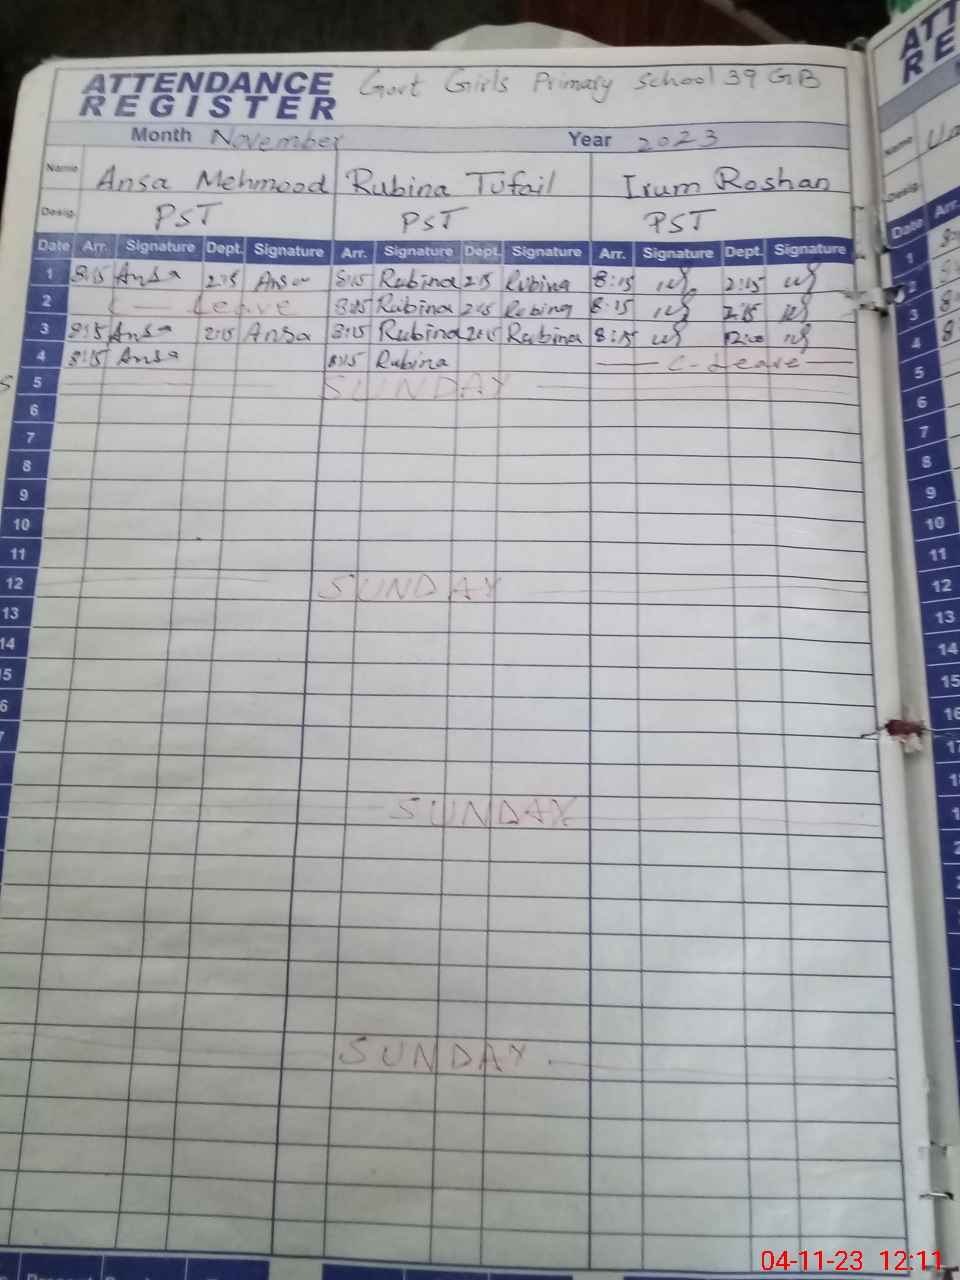 ATTENDANCE REGISTER Govt Girls Primary School 39 GB
Month November Year 2023
Name Ansa Mehmood Rubina Tufail Irum Roshan
Desig. PST PST PST
Date Arr. Signature Dept. Signature Arr. Signature Dept. Signature Arr. Signature Dept. Signature
1 8:15 Ansa 2:15 Ansa 8:15 Rubina 2:15 Rubina 8:15 2:15
2 Leave 8:15 Rubina 2:15 Rubina 8:15 2:15
3 8:15 Ansa 2:15 Ansa 8:15 Rubina 2:15 Rubina 8:15 12:00
4 8:15 Ansa 8:15 Rubina C-Leave
5 SUNDAY
6
7
8
9
10
11
12 SUNDAY
13
14
15
SUNDAY
SUNDAY
ATT
RE
Name
Desig.
Date Arr.
1
2
3
4
5
6
7
8
9
10
11
12
13
14
15
16
17
04-11-23 12:11